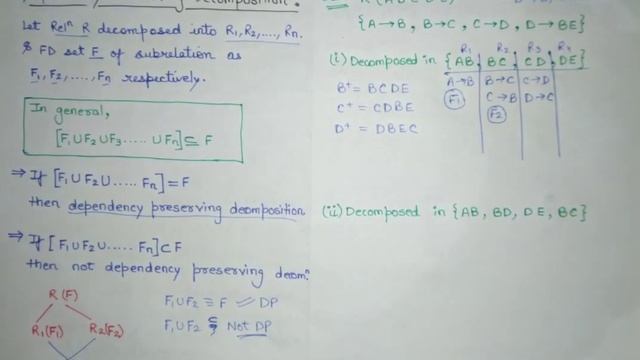 Let Relⁿ R decomposed into R₁, R₂, ...., Rn.
& FD set F of subrelation as
F₁, F₂, ....., Fn respectively.
In general,
[F₁UF₂UF₃..... UFn] ⊆ F
⇒ If [F₁UF₂U..... Fn] = F
then dependency preserving decomposition
⇒ If [F₁UF₂U..... Fn] ⊂ F
then not dependency preserving decomⁿ.
R(F)
R₁(F₁) R₂(F₂)
F₁UF₂ ≡ F DP
F₁UF₂ Not DP
{A→B, B→C, C→D, D→BE}
(i) Decomposed in {AB, BC, CD, DE}
R₁ R₂ R₃ R₄
A→B B→C C→D
F₁ C→B D→C
F₂
B⁺ = BCDE
C⁺ = CDBE
D⁺ = DBEC
(ii) Decomposed in {AB, BD, DE, BC}